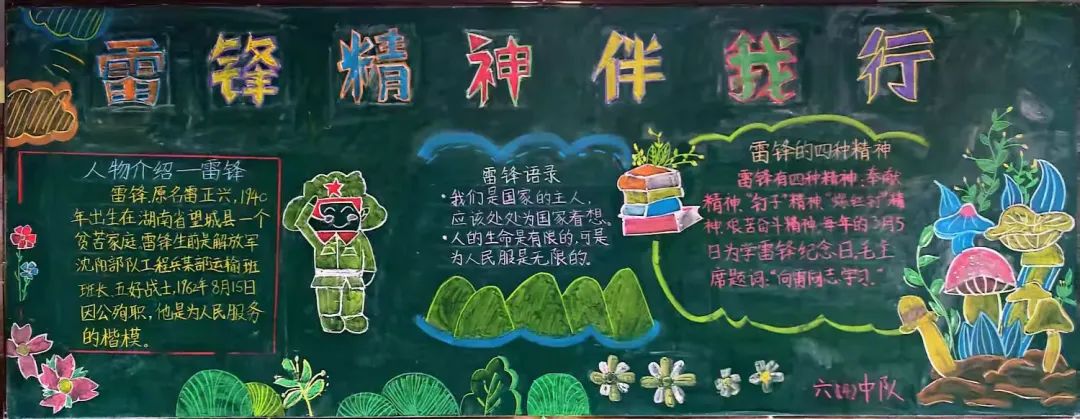 雷锋精神伴我行
人物介绍—雷锋
雷锋,原名雷正兴,1940
年出生在湖南省望城县一个
贫苦家庭,雷锋生前是解放军
沈阳部队工程兵某部运输班
班长、五好战士,1962年8月15日
因公殉职,他是为人民服务
的楷模。
雷锋语录
·我们是国家的主人,
应该处处为国家着想。
·人的生命是有限的,可是
为人民服是无限的。
雷锋的四种精神
雷锋有四种精神、奉献
精神、"钉子"精神、"螺丝钉"精
神、艰苦奋斗精神、每年的3月5
日为学雷锋纪念日、毛主
席题词:"向雷同志学习"。
六 中队